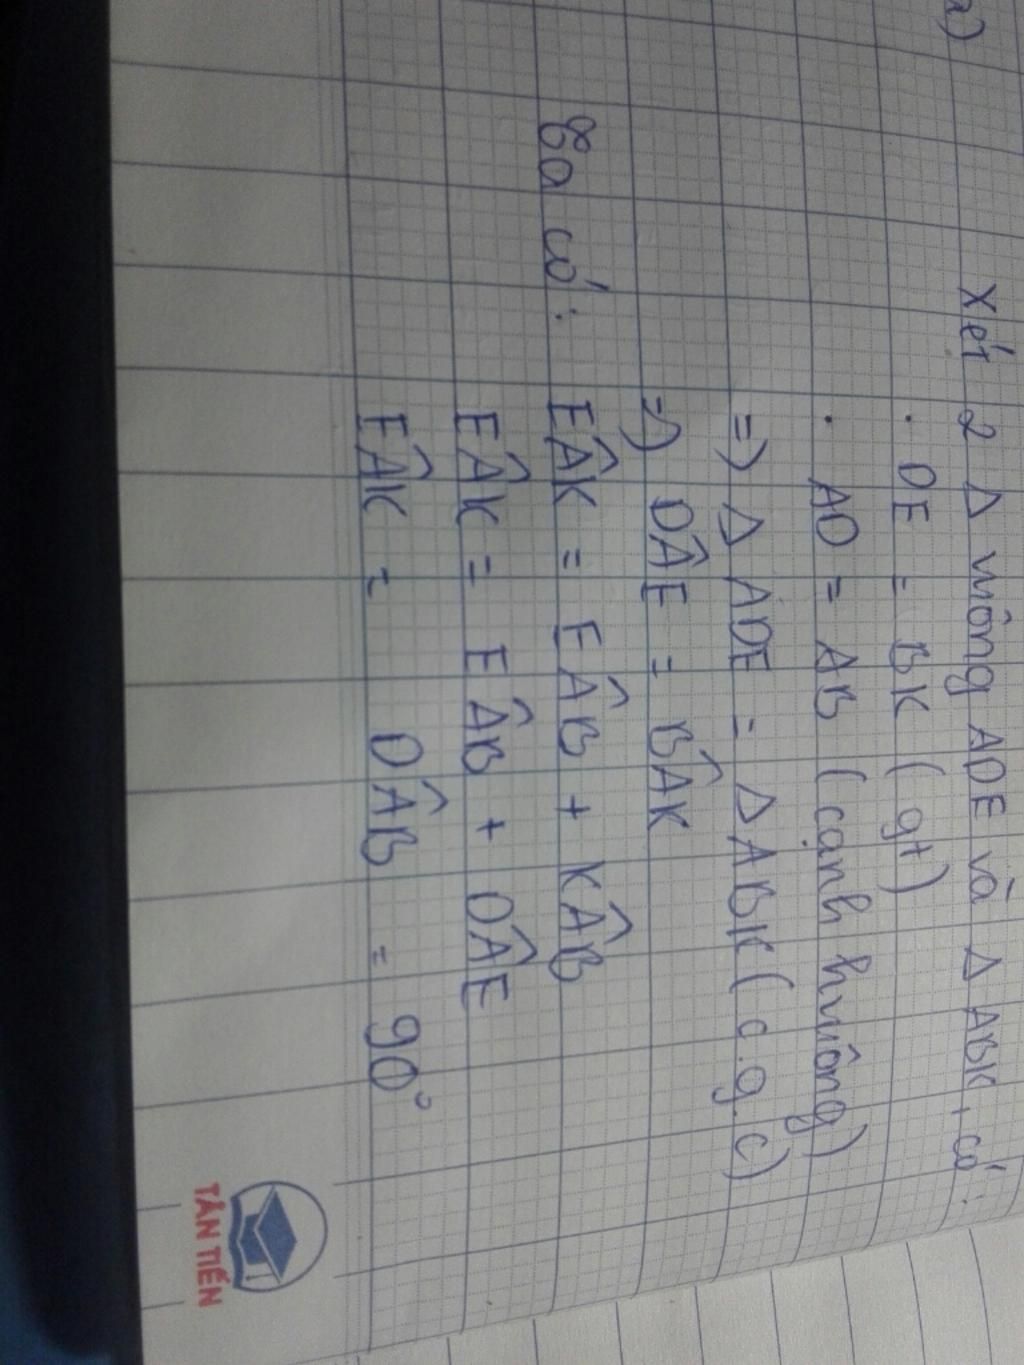 a)
Xét 2 Δ vuông ADE và Δ ABK, có:
. DE = BK (gt)
. AD = AB (cạnh hvuông)
=> Δ ADE = Δ ABK (c.g.c)
=> DÂE = BÂK
Ta có: EÂK = EÂB + KÂB
EÂK = EÂB + DÂE
EÂK = DÂB = 90°
TÂN TIẾN